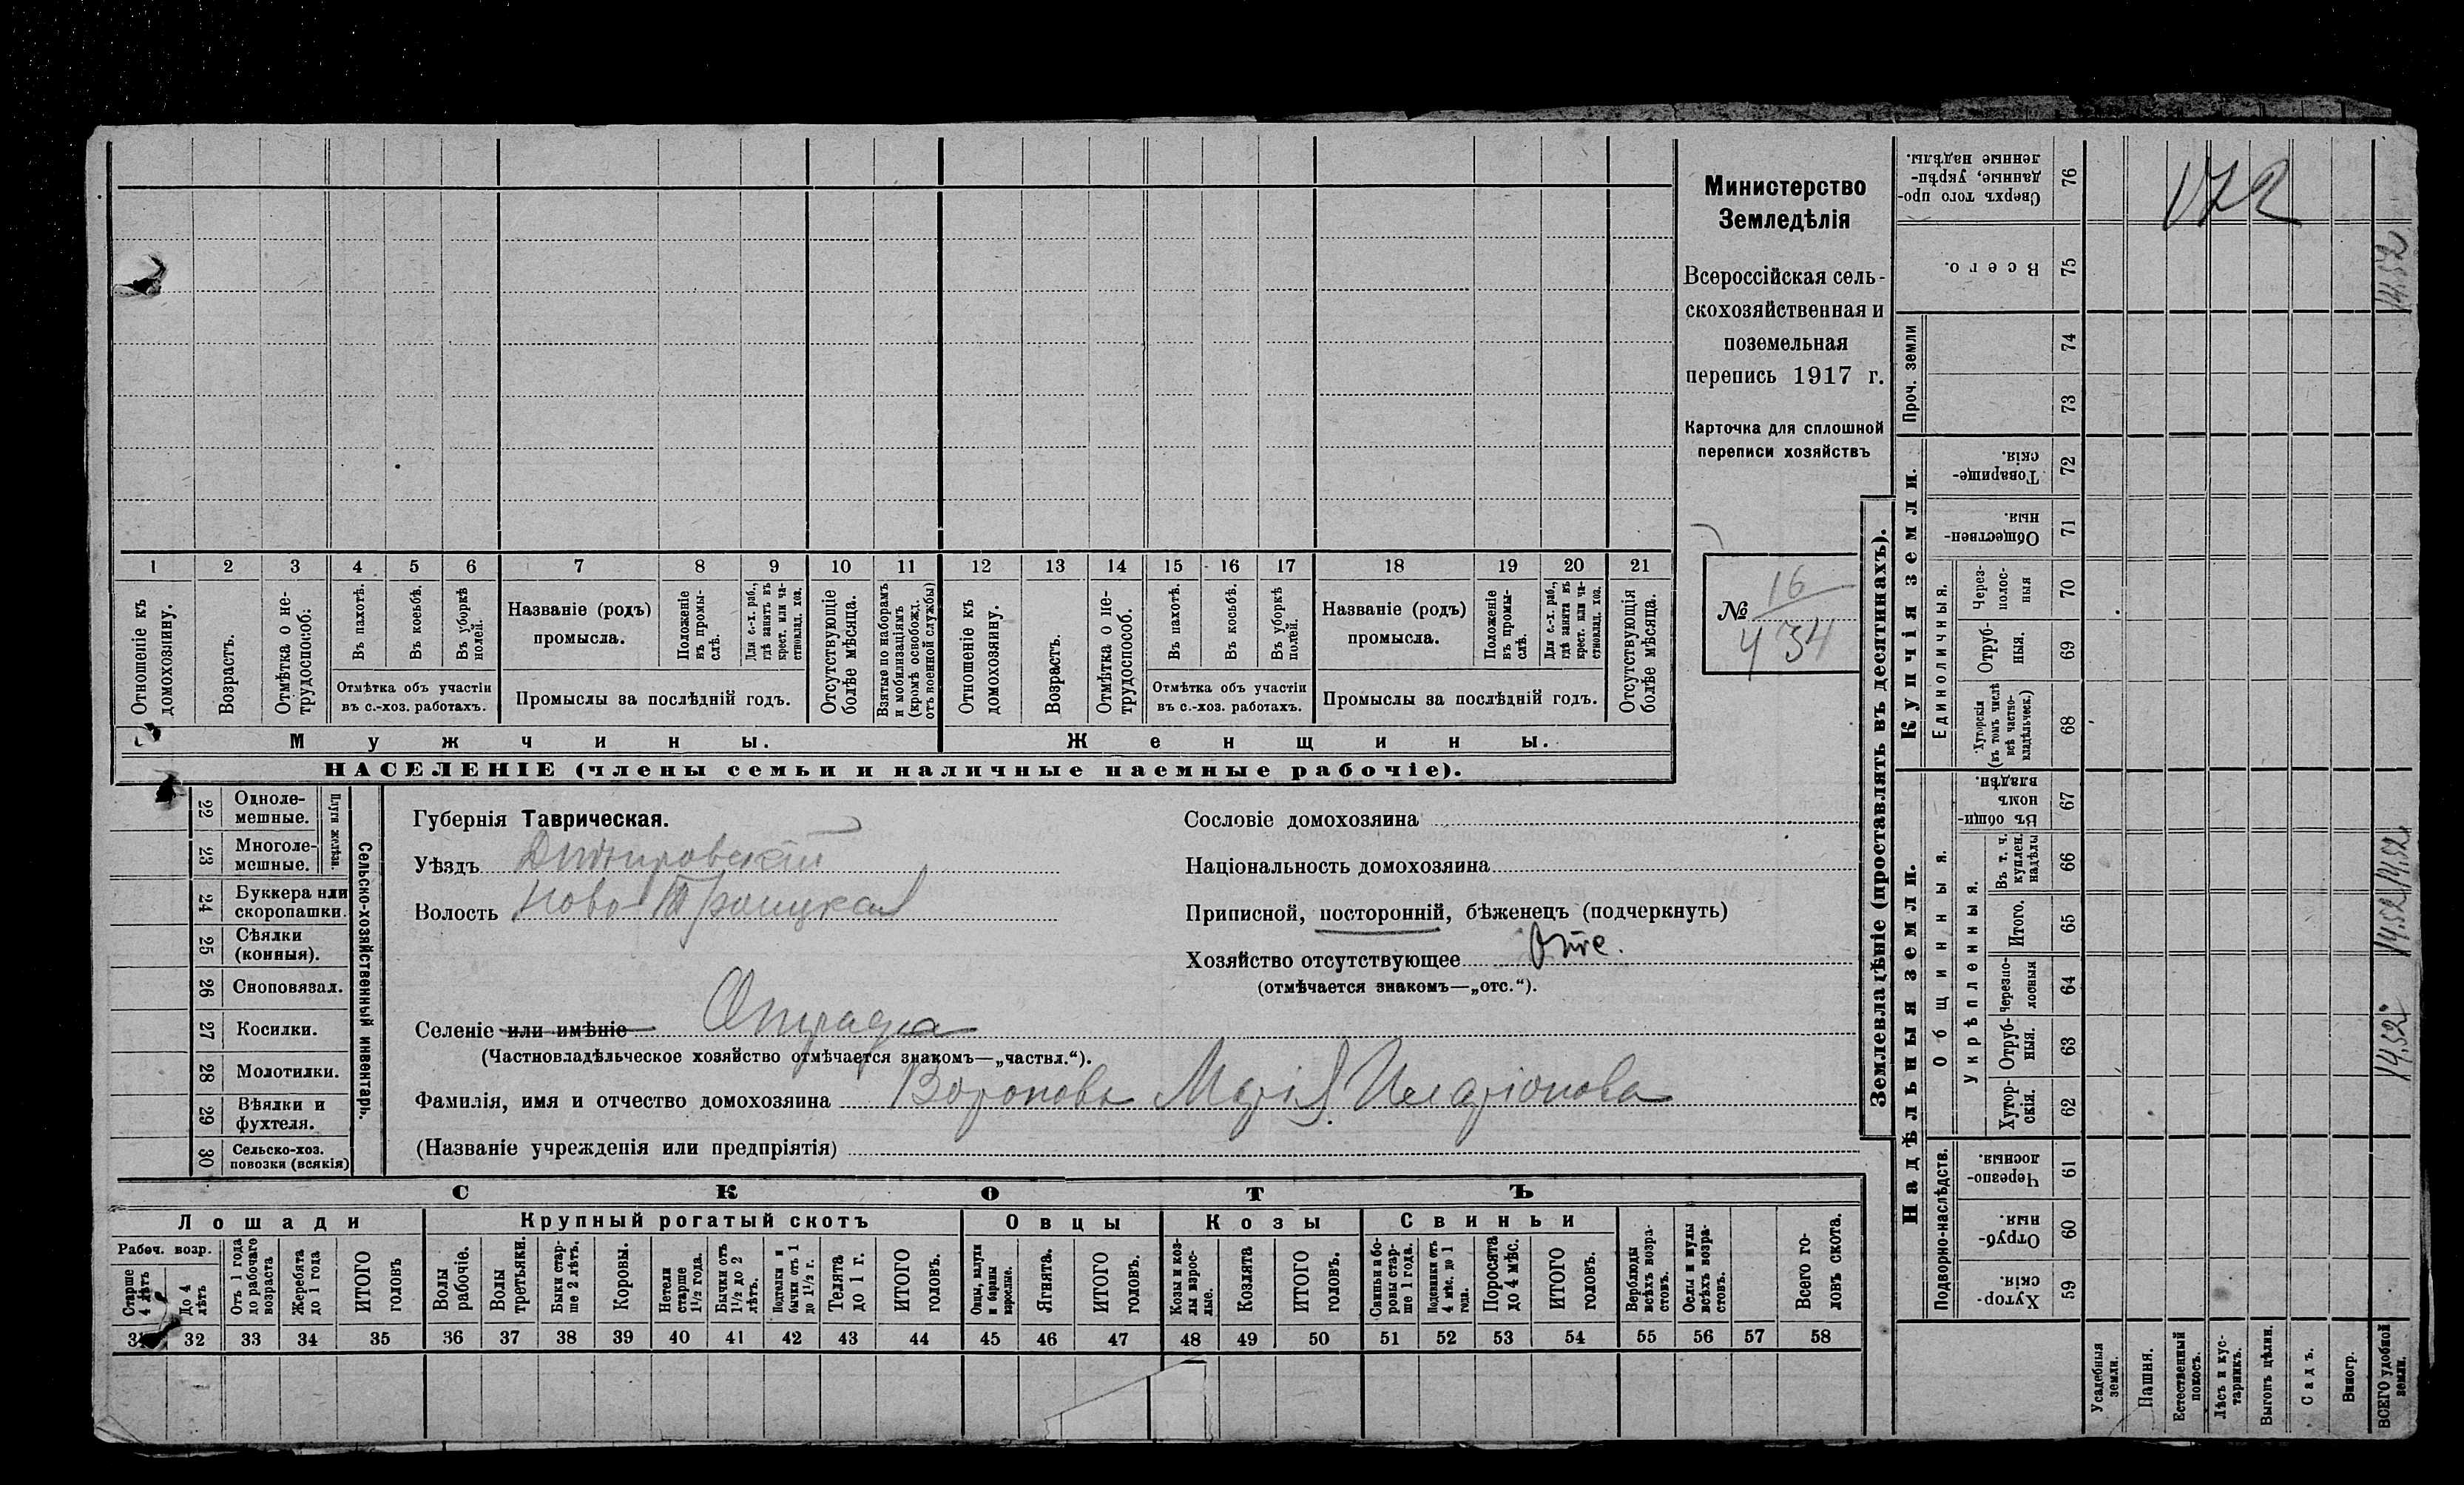 Министерство
Земледѣлія
Всероссійская сель-
скохозяйственная и
поземельная
перепись 1917 г.
Карточка для сплошной
переписи хозяйствъ
№ 16
434
1 2 3 4 5 6 7 8 9 10 11 12 13 14 15 16 17 18 19 20 21
Отношеніе къ домохозяину.
Возрастъ.
Отмѣтка о не-трудоспособ.
Въ пахотѣ.
Въ косьбѣ.
Въ уборкѣ полей.
Отмѣтка объ участіи
въ с.-хоз. работахъ.
Названіе (родъ)
промысла.
Положеніе въ промы-слѣ.
Для с.-х. раб., гдѣ занятъ въ крест. или ча-стновлад. хоз.
Промыслы за послѣдній годъ.
Отсутствующіе болѣе мѣсяца.
Взятые по наборамъ и мобилизаціямъ (кромѣ освобожд. отъ военной службы)
Отношеніе къ домохозяину.
Возрастъ.
Отмѣтка о не-трудоспособ.
Въ пахотѣ.
Въ косьбѣ.
Въ уборкѣ полей.
Отмѣтка объ участіи
въ с.-хоз. работахъ.
Названіе (родъ)
промысла.
Положеніе въ промы-слѣ.
Для с.-х. раб., гдѣ занята въ крест. или ча-стновлад. хоз.
Промыслы за послѣдній годъ.
Отсутствующія болѣе мѣсяца.
Мужчины. Женщины.
НАСЕЛЕНІЕ (члены семьи и наличные наемные рабочіе).
22 Одноле-
мешные.
23 Многоле-
мешные.
Плуги желѣзн.
24 Буккера или
скоропашки.
25 Сѣялки
(конныя).
26 Сноповязал.
27 Косилки.
28 Молотилки.
29 Вѣялки и
фухтеля.
30 Сельско-хоз.
повозки (всякія)
Сельско-хозяйственный инвентарь.
Губернія Таврическая.
Уѣздъ Днѣпровскій
Волость Ново-Троицкая
Селеніе или имѣніе Отрада
(Частновладѣльческое хозяйство отмѣчается знакомъ—„частвл.“).
Фамилія, имя и отчество домохозяина Воронова Марія Иларіонова
(Названіе учрежденія или предпріятія)
Сословіе домохозяина
Національность домохозяина
Приписной, посторонній, бѣженецъ (подчеркнуть)
Хозяйство отсутствующее Отс.
(отмѣчается знакомъ—„отс.“).
СКОТЪ
Лошади Крупный рогатый скотъ Овцы Козы Свиньи
Рабоч. возр.
Старше 4 лѣтъ
До 4 лѣтъ
Отъ 1 года до рабочаго возраста
Жеребята до 1 года
ИТОГО головъ
Волы рабочіе.
Волы третьяки.
Быки стар-ше 2 лѣтъ.
Коровы.
Нетели старше 1½ года.
Бычки отъ 1½ до 2 лѣтъ.
Подтелки и бычки отъ 1 до 1½ г.
Телята до 1 г.
ИТОГО головъ.
Овцы, валухи и бараны взрослые.
Ягнята.
ИТОГО головъ.
Козы и коз-лы взрос-лые.
Козлята
ИТОГО головъ.
Свиньи и бо-ровы стар-ше 1 года.
Подсвинки отъ 4 мѣс. до 1 года.
Поросята до 4 мѣс.
ИТОГО головъ.
Верблюды всѣхъ возра-стовъ.
Ослы и мулы всѣхъ возра-стовъ.
Всего го-ловъ скота.
31 32 33 34 35 36 37 38 39 40 41 42 43 44 45 46 47 48 49 50 51 52 53 54 55 56 57 58
Землевладѣніе (проставлять въ десятинахъ).
Сверхъ того про-данные, укрѣп-ленные надѣлы. 76
172
Всего. 75
14,52
Проч. земли
74
73
Купчія земли.
Товарище-скія. 72
Обществен-ныя. 71
Единоличныя.
Через-полос-ныя 70
Отруб-ныя. 69
Хуторскія (въ томъ числѣ всѣ частно-владѣльческ.) 68
Надѣльныя земли.
Въ общи-номъ владѣн. 67
Общинныя.
Укрѣпленныя.
Въ т. ч. куплен. надѣлы 66
14,52
Итого. 65
14,52
Черезпо-лосныя 64
Отруб-ныя. 63
14,52
Хутор-скія. 62
Подворно-наслѣдств.
Черезпо-лосныя. 61
Отруб-ныя. 60
Хутор-скія. 59
Усадебныя земли.
Пашня.
Естественный покосъ.
Лѣсъ и кус-тарникъ.
Выгонъ цѣлин.
Садъ.
Виногр.
ВСЕГО удобной земли.